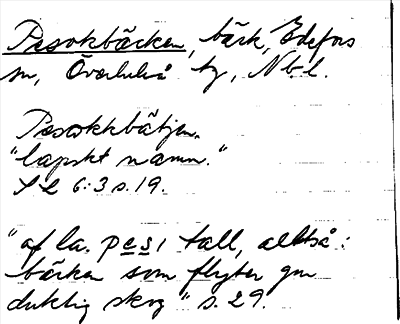 Pesokbäcken, bäck, Edefors
sn, Överluleå tg, Nbl.
Pesokkbätjen.
"lapskt namn."
SL 6:3 s. 19.
"af la. pesı tall, alltså:
bäcken som flyter gm
duktig skog" s. 29.